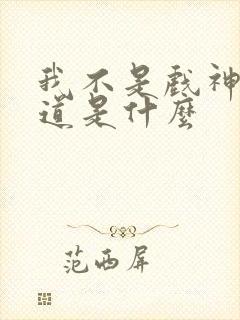 我不是戏神
道是什麽
范西屏